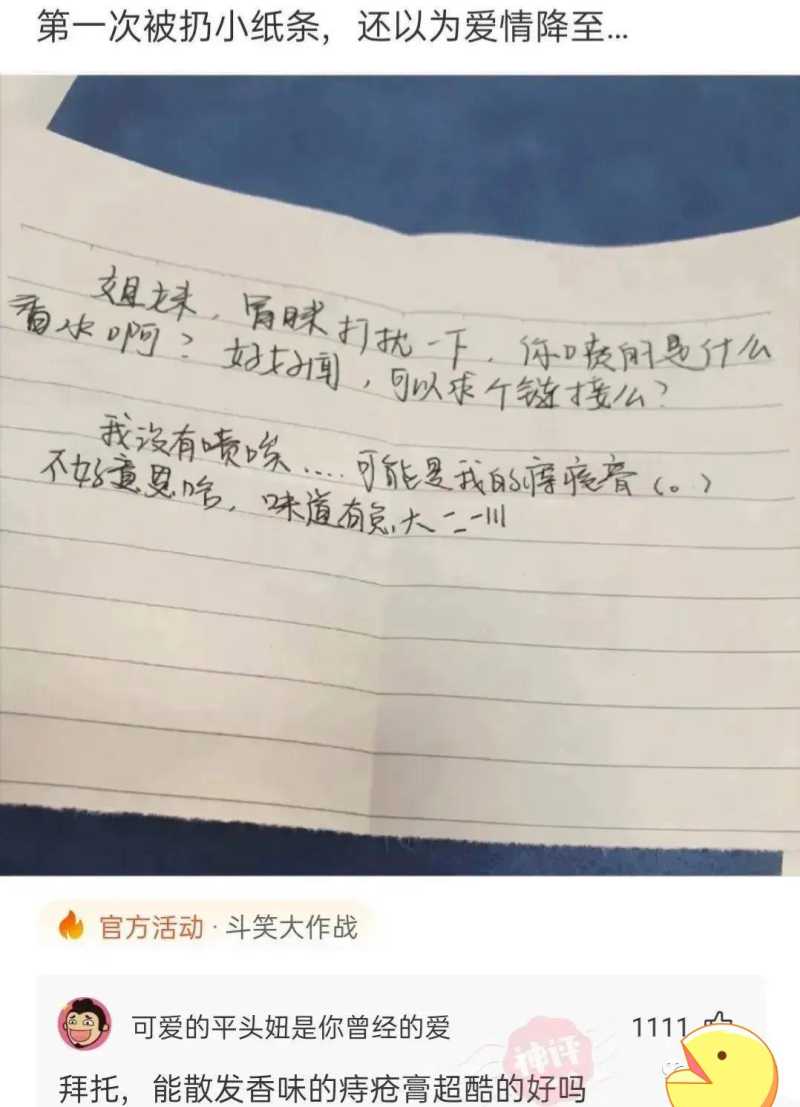 第一次被扔小纸条，还以为爱情降至...
姐妹，冒昧打扰一下，你喷的是什么
香水啊？好好闻，可以求个链接么？
我没有喷唉....可能是我的痔疮膏（。）
不好意思哈，味道有点大二一川
官方活动·斗笑大作战
可爱的平头妞是你曾经的爱
1111
神评
拜托，能散发香味的痔疮膏超酷的好吗